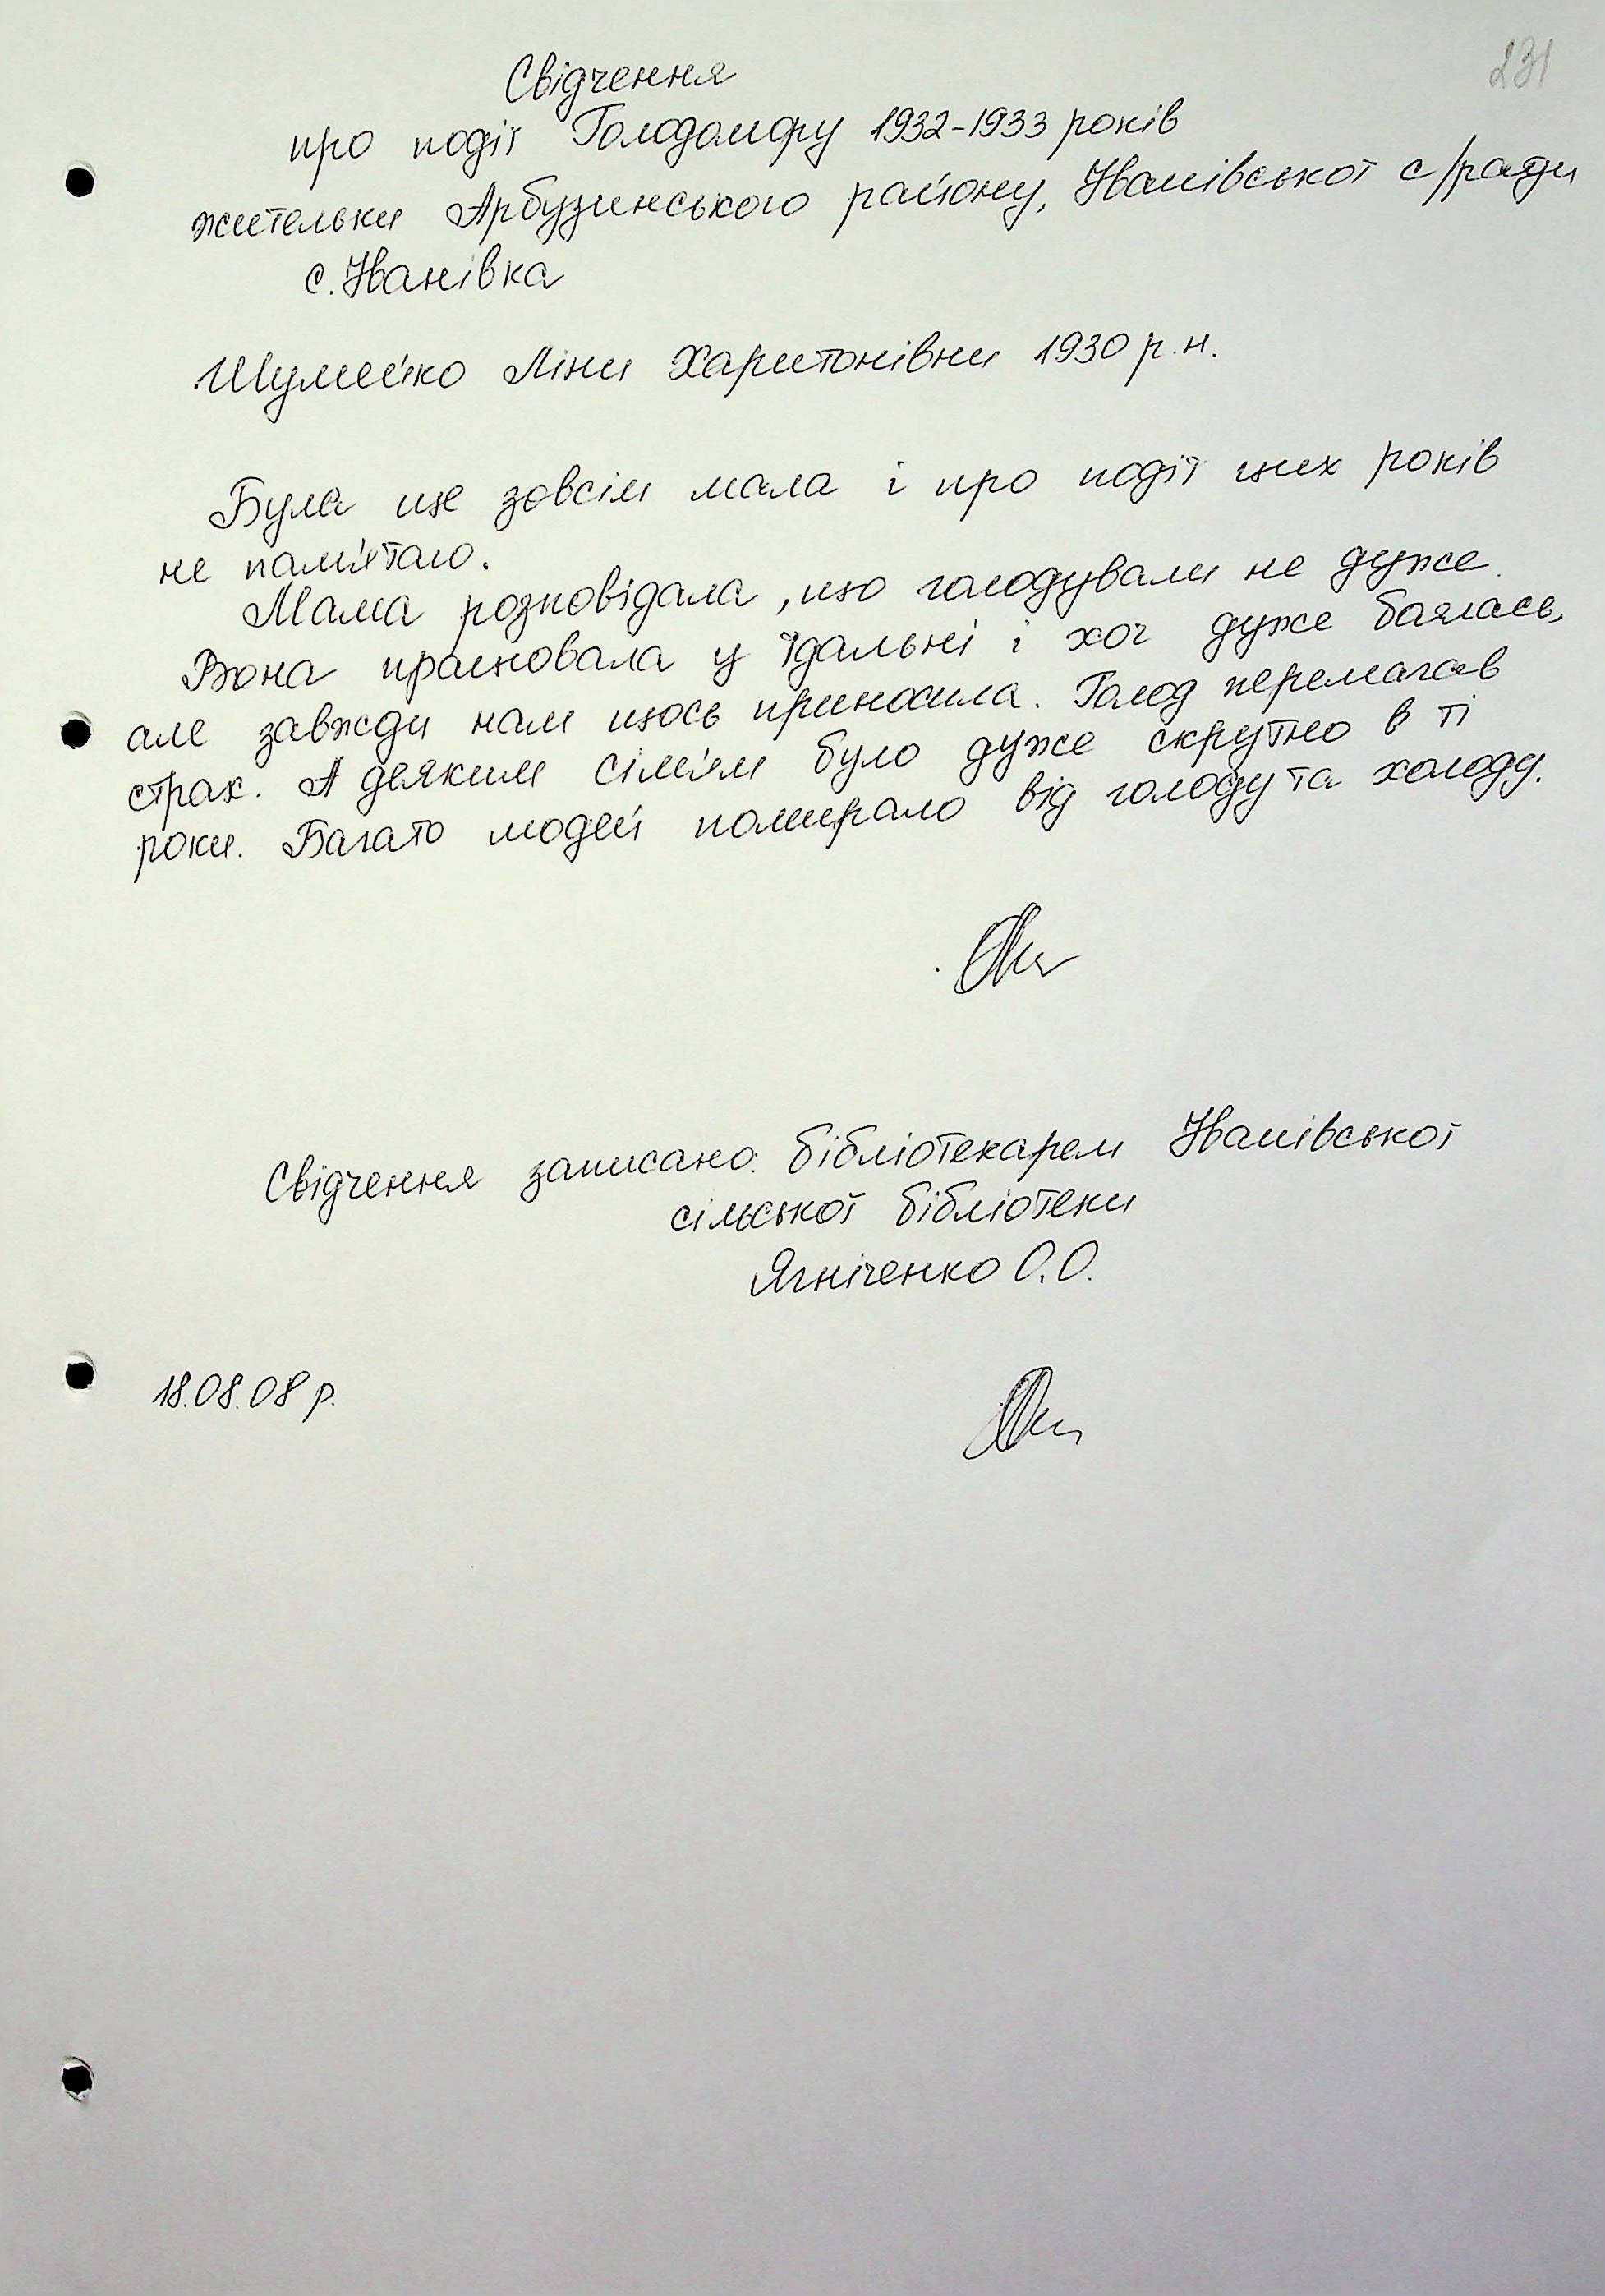 231
Свідчення
про події Голодомору 1932-1933 років
жительки Арбузинського району, Іванівської с/ради
с. Іванівка
Шумейко Ліни Харитонівни 1930 р. н.
Була ще зовсім мала і про події цих років
не пам'ятаю.
Мама розповідала, що голодували не дуже.
Вона працювала у їдальні і хоч дуже боялась,
але завжди нам щось приносила. Голод перемагав
страх. А деяким сім'ям було дуже скрутно в ті
роки. Багато людей помирало від голоду та холоду.
Свідчення записано: бібліотекарем Іванівської
сільської бібліотеки
Ягніченко О.О.
18.08.08 р.